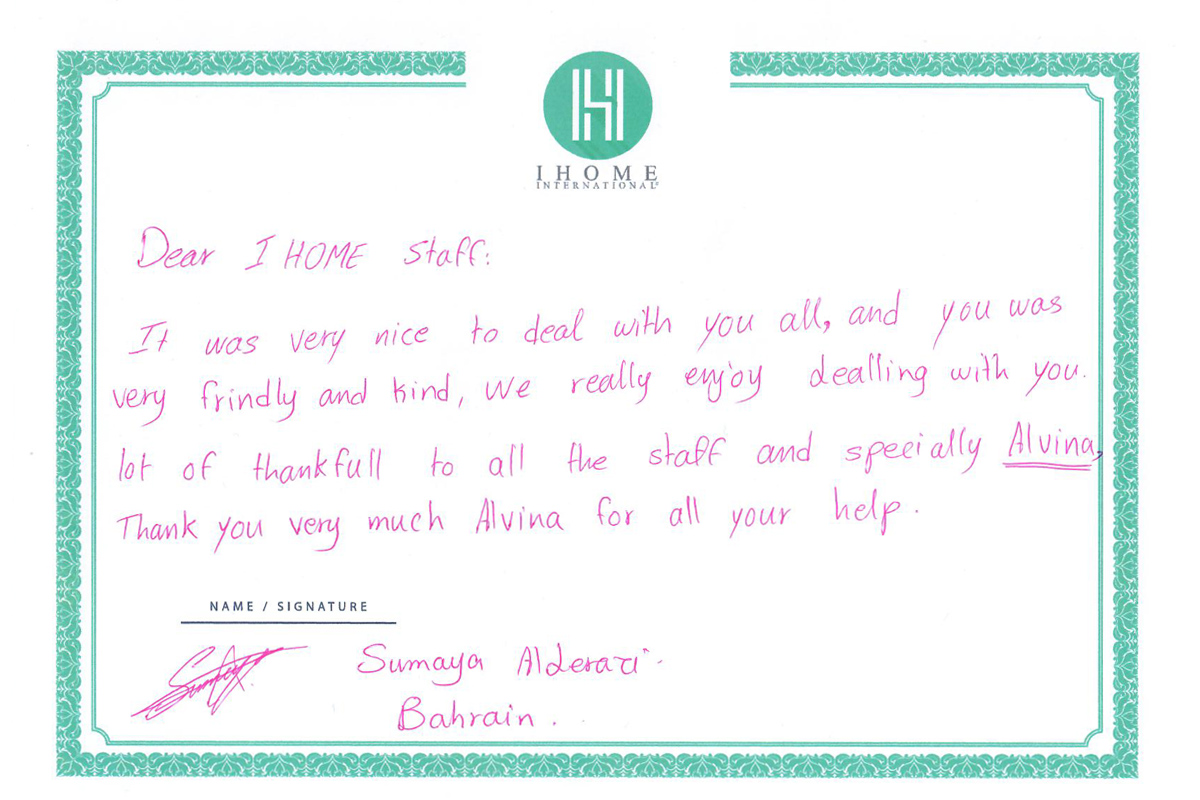 IHOME
INTERNATIONAL
Dear I HOME Staff:
It was very nice to deal with you all, and you was
very frindly and kind, We really enjoy dealling with you.
lot of thankfull to all the staff and specially Alvina,
Thank you very much Alvina for all your help.
NAME / SIGNATURE
Sumaya
Bahrain.